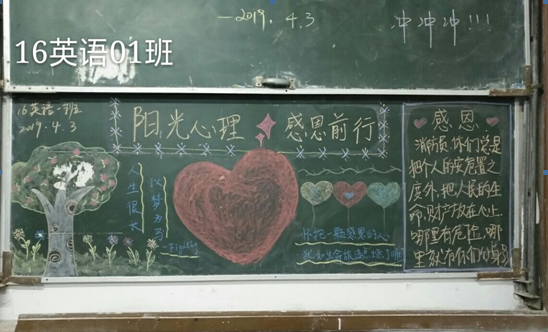 —2019.4.3
冲冲冲!!!
16英语01班
16英语一班
2019.4.3
阳光心理 感恩前行
感恩
人生很长
以梦为马
-Fighting
怀抱一颗感恩的心
消防员,你们总是
把个人的安危置之
度外,把人民的生
命,财产放在心上。
哪里有危险,哪
里就有你们的身影